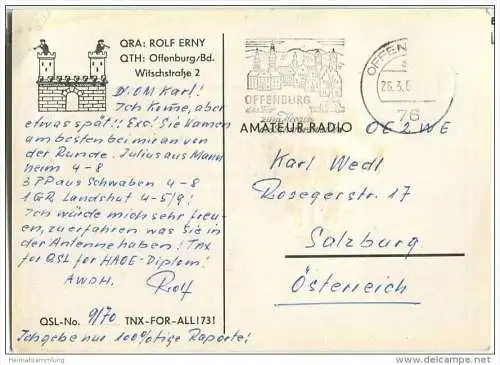 QRA: ROLF ERNY
QTH: Offenburg/Bd.
Witschstraße 2
D' OM Karl!
Ich komme, aber
etwas spät!! Exc! Sie kamen
am besten bei mir an von
der Runde. Julius aus Mann
heim 4-8
3 PP aus Schwaben 4-8
1 GR Landshut 4-5/9!
Ich würde mich sehr freu-
en, zu erfahren was Sie in
der Antenne haben! Tnx
for QSL for HADE-Diplom!
AWDH. Rolf
QSL-No. 9/70 TNX-FOR-ALL! 73!
Ich gebe nur 100%tige Raporte!
OFFENBURG
OFFEN
26.3.
76
AMATEUR RADIO OE2WE
Karl Wedl
Rosegerstr. 17
Salzburg
Österreich
Heimatsammlung
www.delcampe.net